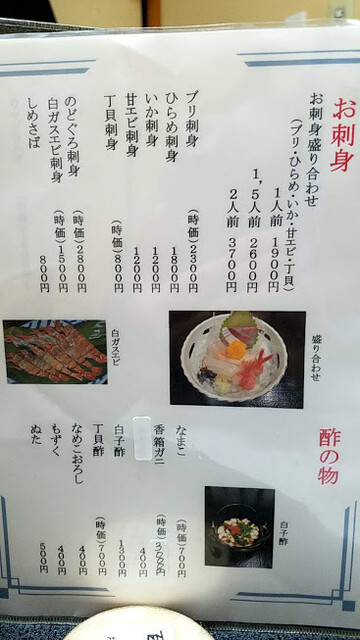 お刺身
お刺身盛り合わせ
(ブリ・ひらめ・いか・甘エビ・丁貝)
1人前 1900円
1,5人前 2600円
2人前 3700円
ブリ刺身 (時価)2300円
ひらめ刺身 1800円
いか刺身 1200円
甘エビ刺身 1200円
丁貝刺身 (時価)800円
のどぐろ刺身 (時価)2800円
白ガスエビ刺身 (時価)1500円
しめさば 800円
盛り合わせ
白ガスエビ
酢の物
なまこ (時価)700円
香箱ガニ (時価)3000円
400円
白子酢 1300円
丁貝酢 (時価)700円
なめこおろし 400円
もずく 400円
ぬた 500円
白子酢